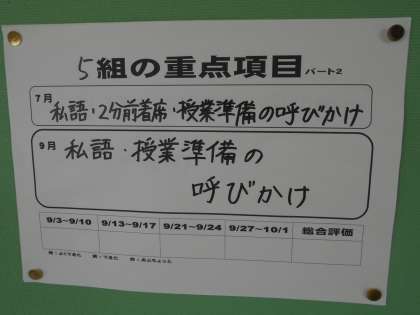 5組の重点項目 パート2
7月
私語・2分前着席・授業準備の呼びかけ
9月 私語・授業準備の
呼びかけ
9/3~9/10 9/13~9/17 9/21~9/24 9/27~10/1 総合評価